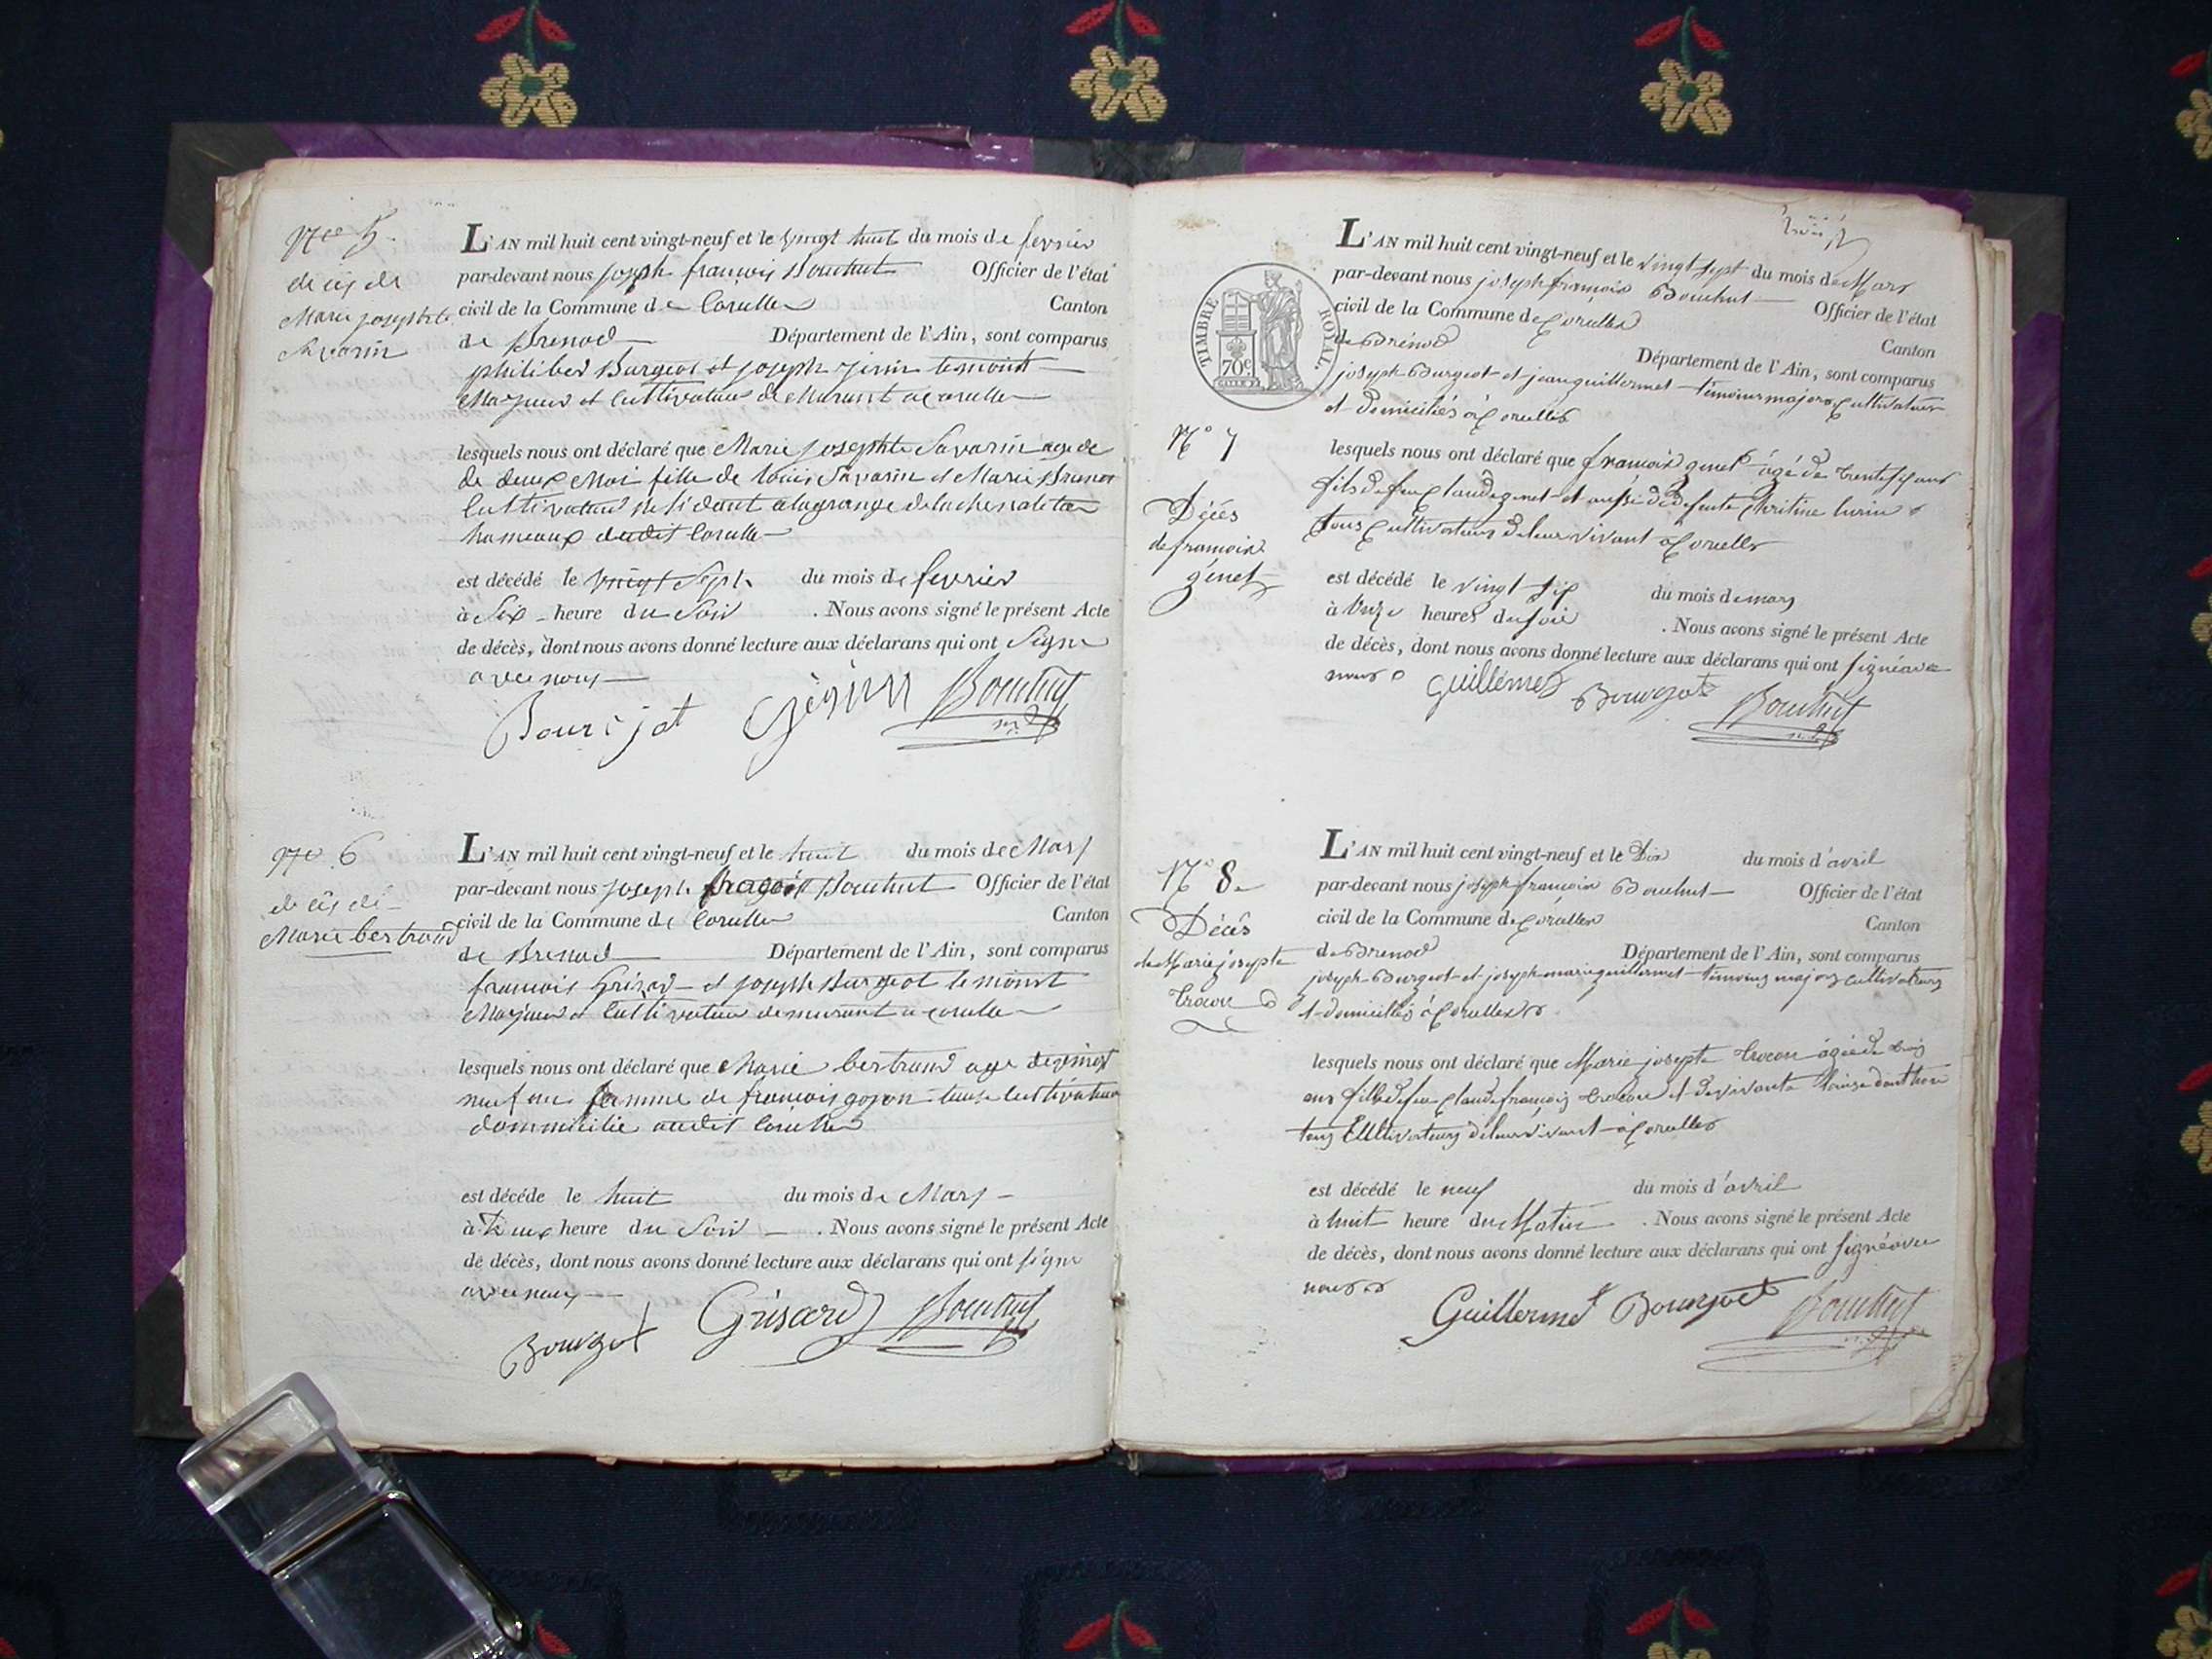 N° 5
décès de
Marie josephte
Savarin
L'AN mil huit cent vingt-neuf et le vingt huit du mois de fevrier
par-devant nous joseph françois Bouchut Officier de l'état
civil de la Commune de Corcelles Canton
de Brenod Département de l'Ain, sont comparus
philibert Burgeot et joseph temoint
Majeurs et Cultivateurs demeurant a corcelle
lesquels nous ont déclaré que Marie josephte Savarin age de
de deux Moi fille de louis Savarin et Marie
Cultivateur residant a lagrange
hameaux dudit Corcelle
est décédé le vingt Sept du mois de fevrier
à Six heure du Soir . Nous avons signé le présent Acte
de décès, dont nous avons donné lecture aux déclarans qui ont Signe
avec nous
Bourjot Bouchut
N° 6
décès de
Marie bertrand
L'AN mil huit cent vingt-neuf et le huit du mois de Mars
par-devant nous joseph françois Bouchut Officier de l'état
civil de la Commune de Corcelle Canton
de Brenod Département de l'Ain, sont comparus
francois Grisard et joseph Burgeot temoint
Majeurs et Cultivateur demeurant a corcelle
lesquels nous ont déclaré que Marie bertrand age de vingt
neuf ans femme de francois goyon Cultivateur
dommicilie audit Corcelles
est décédé le huit du mois de Mars
à deux heure du Soir . Nous avons signé le présent Acte
de décès, dont nous avons donné lecture aux déclarans qui ont signe
avec nous
Bourgot Grisard Bouchut
TIMBRE ROYAL.
70c
L'AN mil huit cent vingt-neuf et le vingt sept du mois de Mars
par-devant nous joseph francois Bouchut Officier de l'état
civil de la Commune de Corcelles Canton
de Brénod Département de l'Ain, sont comparus
joseph Burgeot et jean guillermet témoins majors Cultivateurs
et domiciliés à Corcelles
N° 7
Décès
de francois
génet
lesquels nous ont déclaré que francois genet âgé de trente ans
fils de feu Claude genet et aussi de defunte Cristine
tous Cultivateurs de leur vivant à Corcelles
est décédé le vingt six du mois de mars
à Onze heures du soir . Nous avons signé le présent Acte
de décès, dont nous avons donné lecture aux déclarans qui ont signé avec
nous
Guillermet Bourgot Bouchut
N° 8
Décès
de Marie josepte
trocon
L'AN mil huit cent vingt-neuf et le Dix du mois d'avril
par-devant nous joseph francois Bouchut Officier de l'état
civil de la Commune de Corcelles Canton
de Brenod Département de l'Ain, sont comparus
joseph Burgeot et joseph marie guillermet témoins majors cultivateurs
et domiciliés à Corcelles
lesquels nous ont déclaré que Marie josepte trocon âgée de trois
ans fille de feu Claude françois trocon et de vivante louise
tous Cultivateurs de leur vivant à Corcelles
est décédé le neuf du mois d'avril
à huit heure du Matin . Nous avons signé le présent Acte
de décès, dont nous avons donné lecture aux déclarans qui ont signé avec
nous
Guillermet Bourgot Bouchut